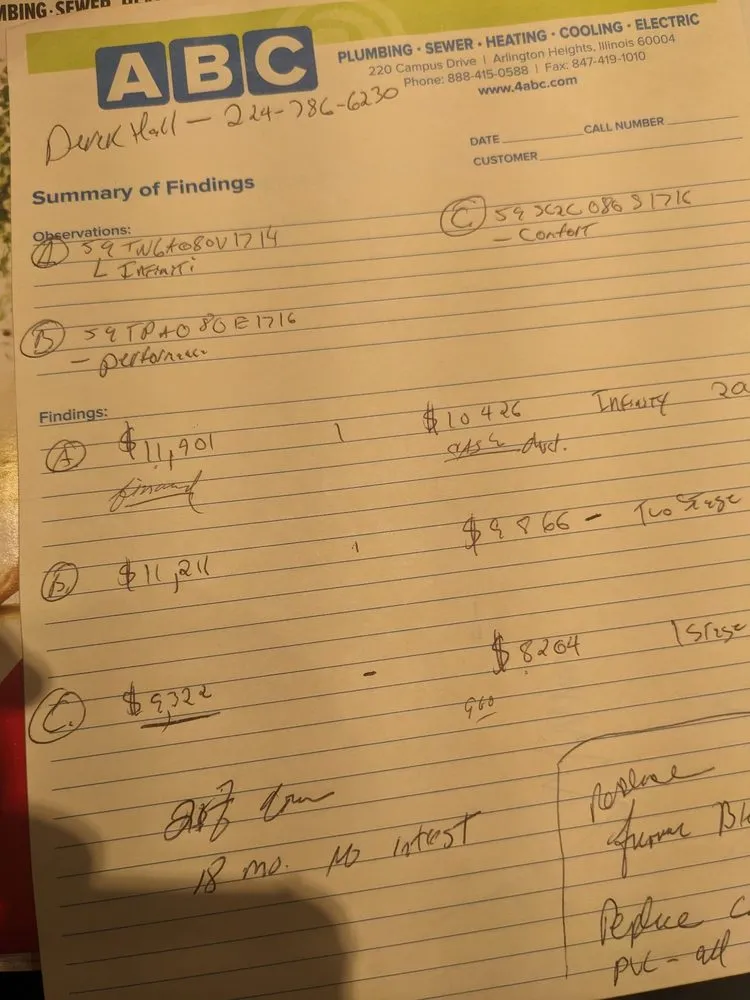 MBING · SEWER
ABC
PLUMBING · SEWER · HEATING · COOLING · ELECTRIC
220 Campus Drive | Arlington Heights, Illinois 60004
Phone: 888-415-0588 | Fax: 847-419-1010
www.4abc.com
Derek Hall — 224-786-6230
DATE CALL NUMBER
CUSTOMER
Summary of Findings
Observations:
A 59TN6A080V1714
L Infiniti
C 59SC2C080S1716
- Confort
B 59TPA080E1716
- performance
Findings:
A $11,901 $10426 Infinity 20
financed cash disct.
B $11,211 $9866 - Two Stage
C. $9322 - $8204 1 Stage
960
down
18 mo. No intrest
Replace
furnace
Replace
PVC - all